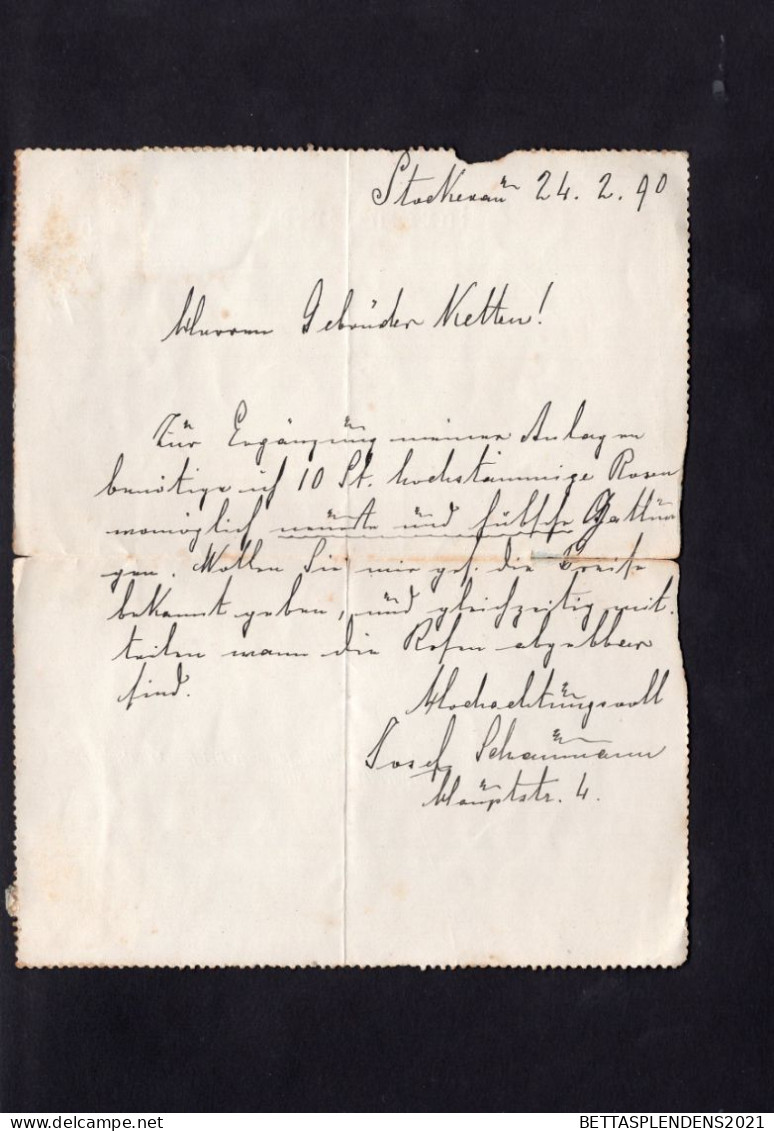 Stockerau 24. 2. 90
Herren Gebrüder Ketten!
Zur Ergänzung meiner Anlagen
benötige ich 10 St. hochstämmige Rosen
womöglich neuste und hübsche Gattun
gen. Wollen Sie mir gef. die Preise
bekannt geben, und gleichzeitig mit-
teilen wann die Rosen abgebbar
sind.
Hochachtungsvoll
Josef Schaumann
Hauptstr. 4.
BETTASPLENDENS2021